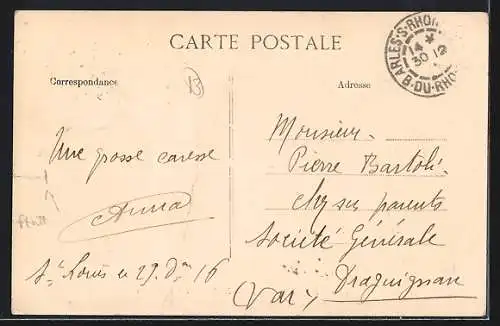 CARTE POSTALE
Correspondance
13
Adresse
ARLES-S-RHONE
14 *
30 12
B-DU-RHO
Une grosse caresse
Anna
St Louis le 29 Dre 16
Monsieur
Pierre Bartoli
chez ses parents
Société Générale
Draguignan
(Var)